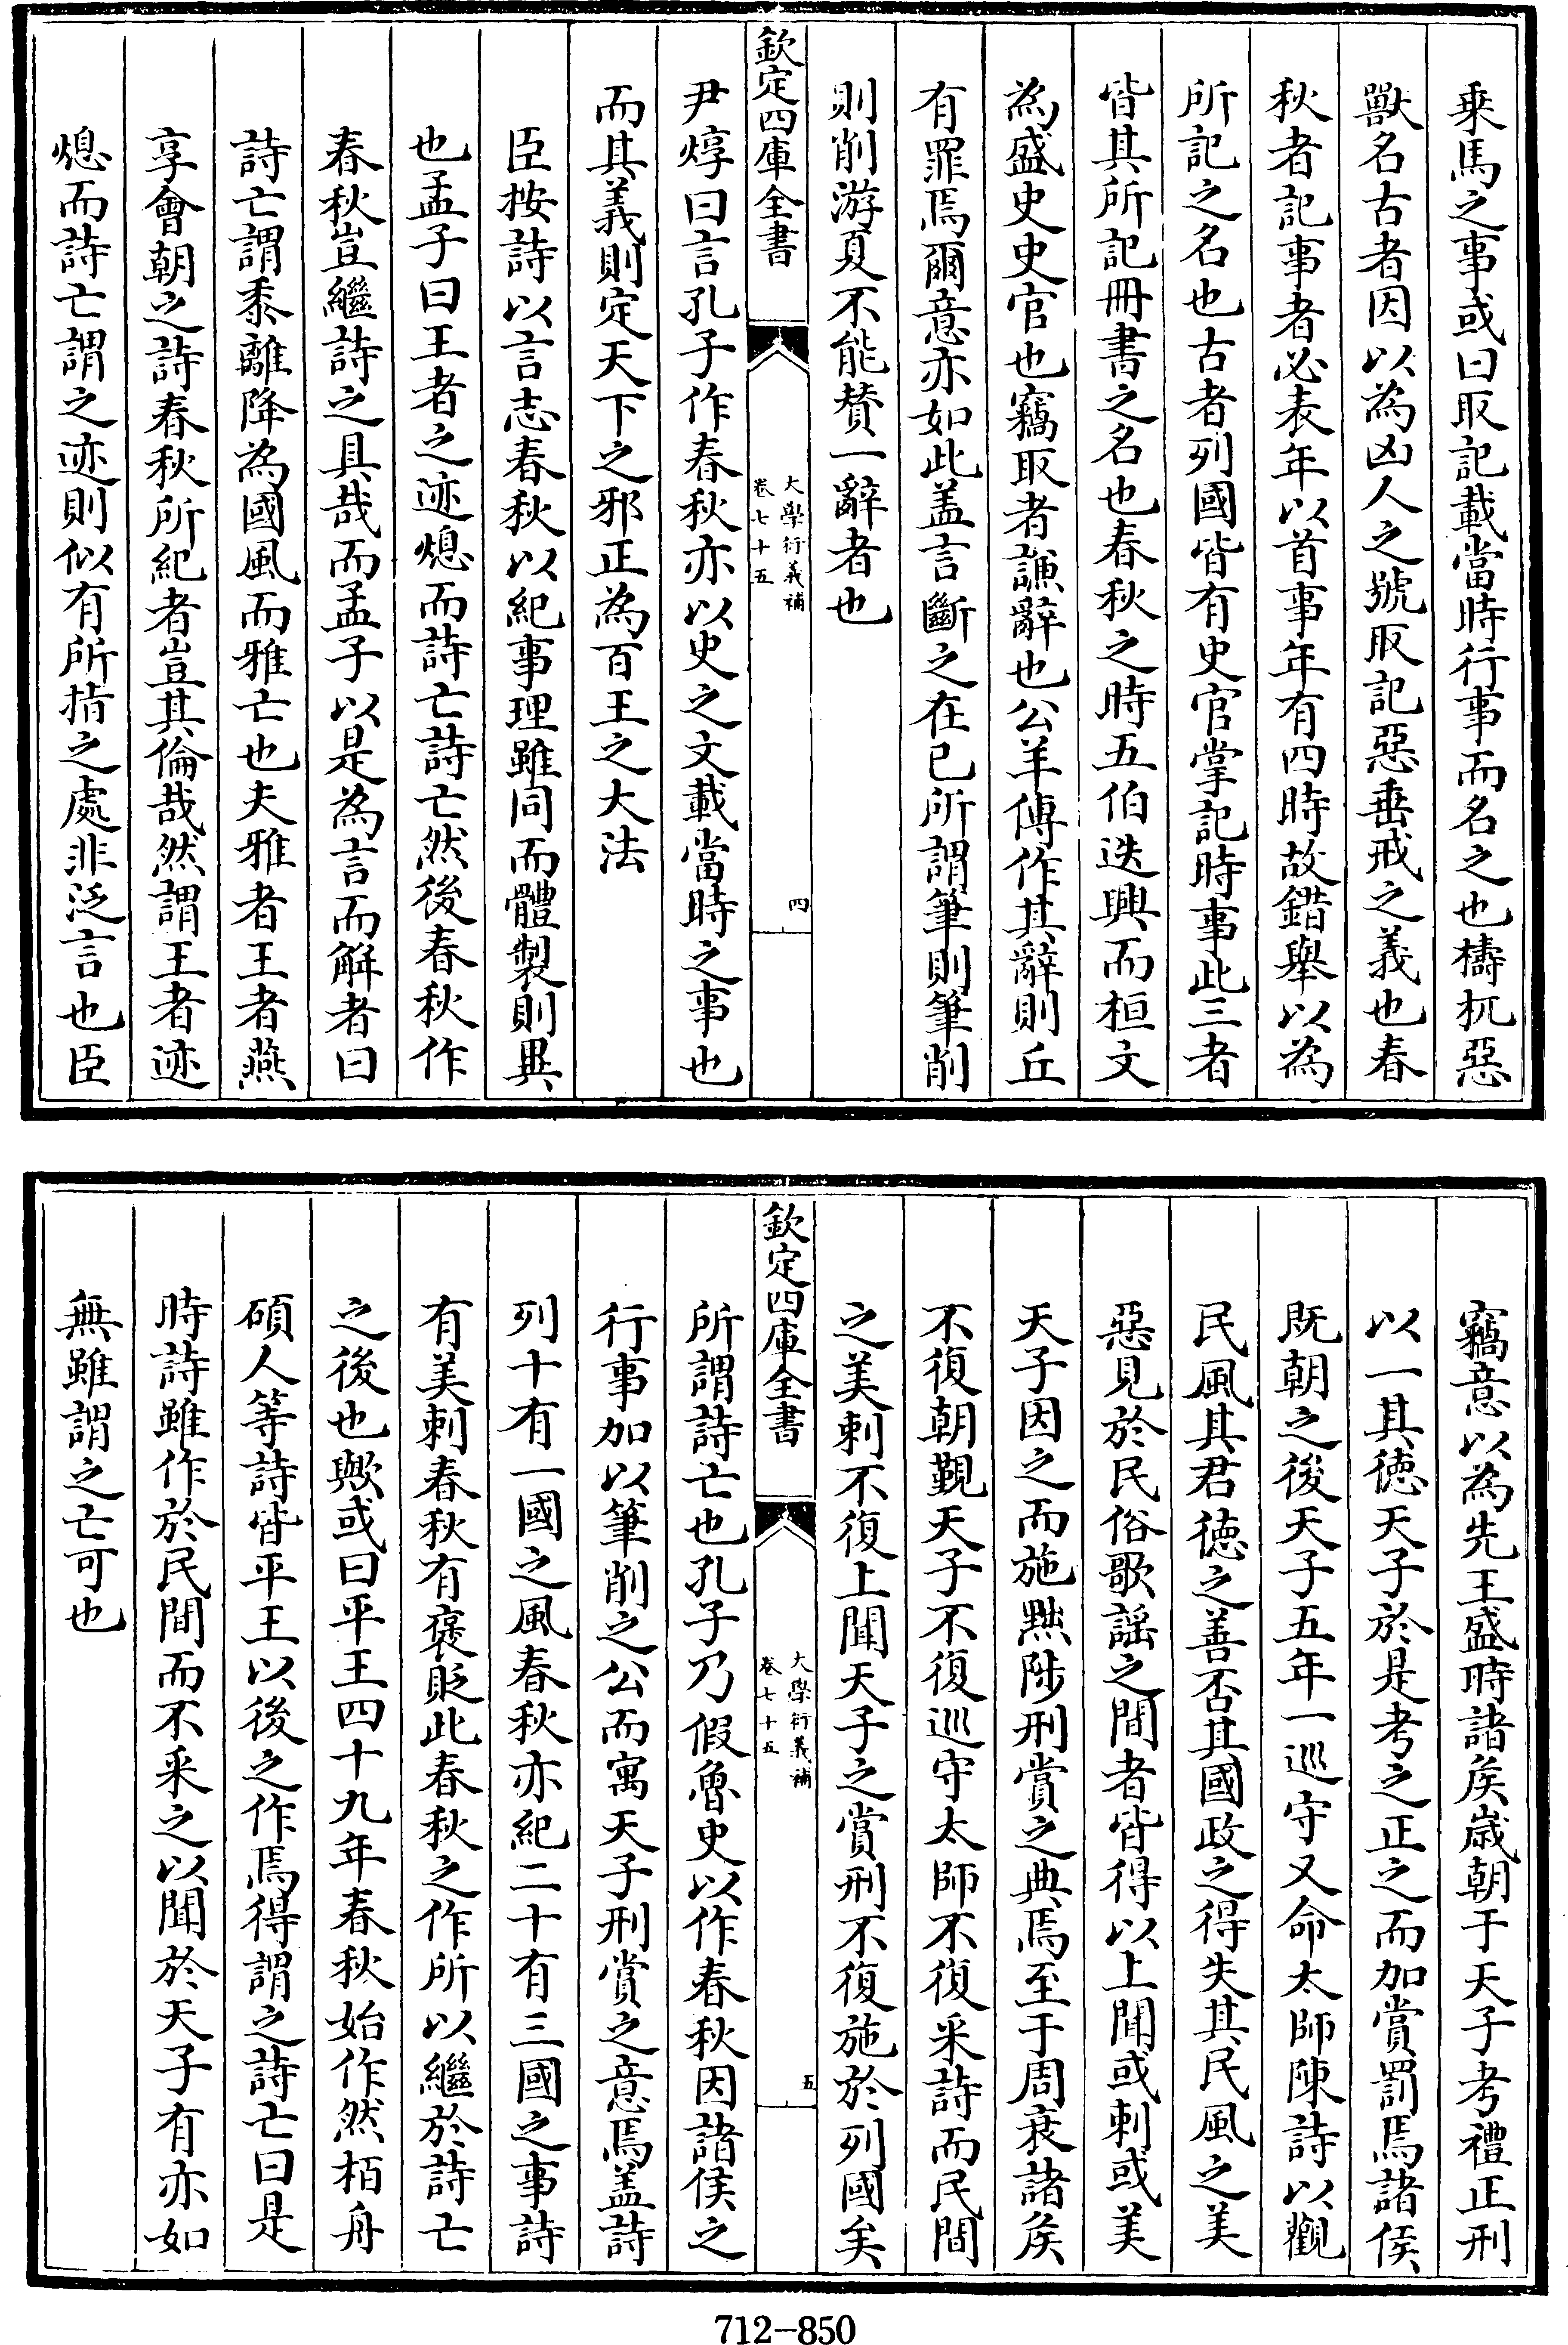 乘馬之事或曰取記載當時行事而名之也檮杌惡
獸名古者因以為凶人之號取記惡垂戒之義也春
秋者記事者必表年以首事年有四時故錯舉以為
所記之名也古者列國皆有史官掌記時事此三者
皆其所記冊書之名也春秋之時五伯迭興而桓文
為盛史史官也竊取者謙辭也公羊傳作其辭則丘
有罪焉爾意亦如此盖言斷之在已所謂筆則筆削
則削游夏不能贊一辭者也
欽定四庫全書
大學衍義補
卷七十五
四
尹焞曰言孔子作春秋亦以史之文載當時之事也
而其義則定天下之邪正為百王之大法
臣按詩以言志春秋以紀事理雖同而體製則異
也孟子曰王者之迹熄而詩亡詩亡然後春秋作
春秋豈繼詩之具哉而孟子以是為言而解者曰
詩亡謂黍離降為國風而雅亡也夫雅者王者燕
享會朝之詩春秋所紀者豈其倫哉然謂王者迹
熄而詩亡謂之迹則似有所指之處非泛言也臣
竊意以為先王盛時諸矦嵗朝于天子考禮正刑
以一其徳天子於是考之正之而加賞罰焉諸侯
既朝之後天子五年一巡守又命太師陳詩以觀
民風其君徳之善否其國政之得失其民風之美
惡見於民俗歌謡之間者皆得以上聞或刺或美
天子因之而施黜陟刑賞之典焉至于周衰諸矦
不復朝覲天子不復巡守太師不復采詩而民間
之美刺不復上聞天子之賞刑不復施於列國矣
欽定四庫全書
大學衍義補
卷七十五
五
所謂詩亡也孔子乃假魯史以作春秋因諸侯之
行事加以筆削之公而寓天子刑賞之意焉盖詩
列十有一國之風春秋亦紀二十有三國之事詩
有美刺春秋有褒貶此春秋之作所以繼於詩亡
之後也歟或曰平王四十九年春秋始作然栢舟
碩人等詩皆平王以後之作焉得謂之詩亡曰是
時詩雖作於民間而不采之以聞於天子有亦如
無雖謂之亡可也
712-850